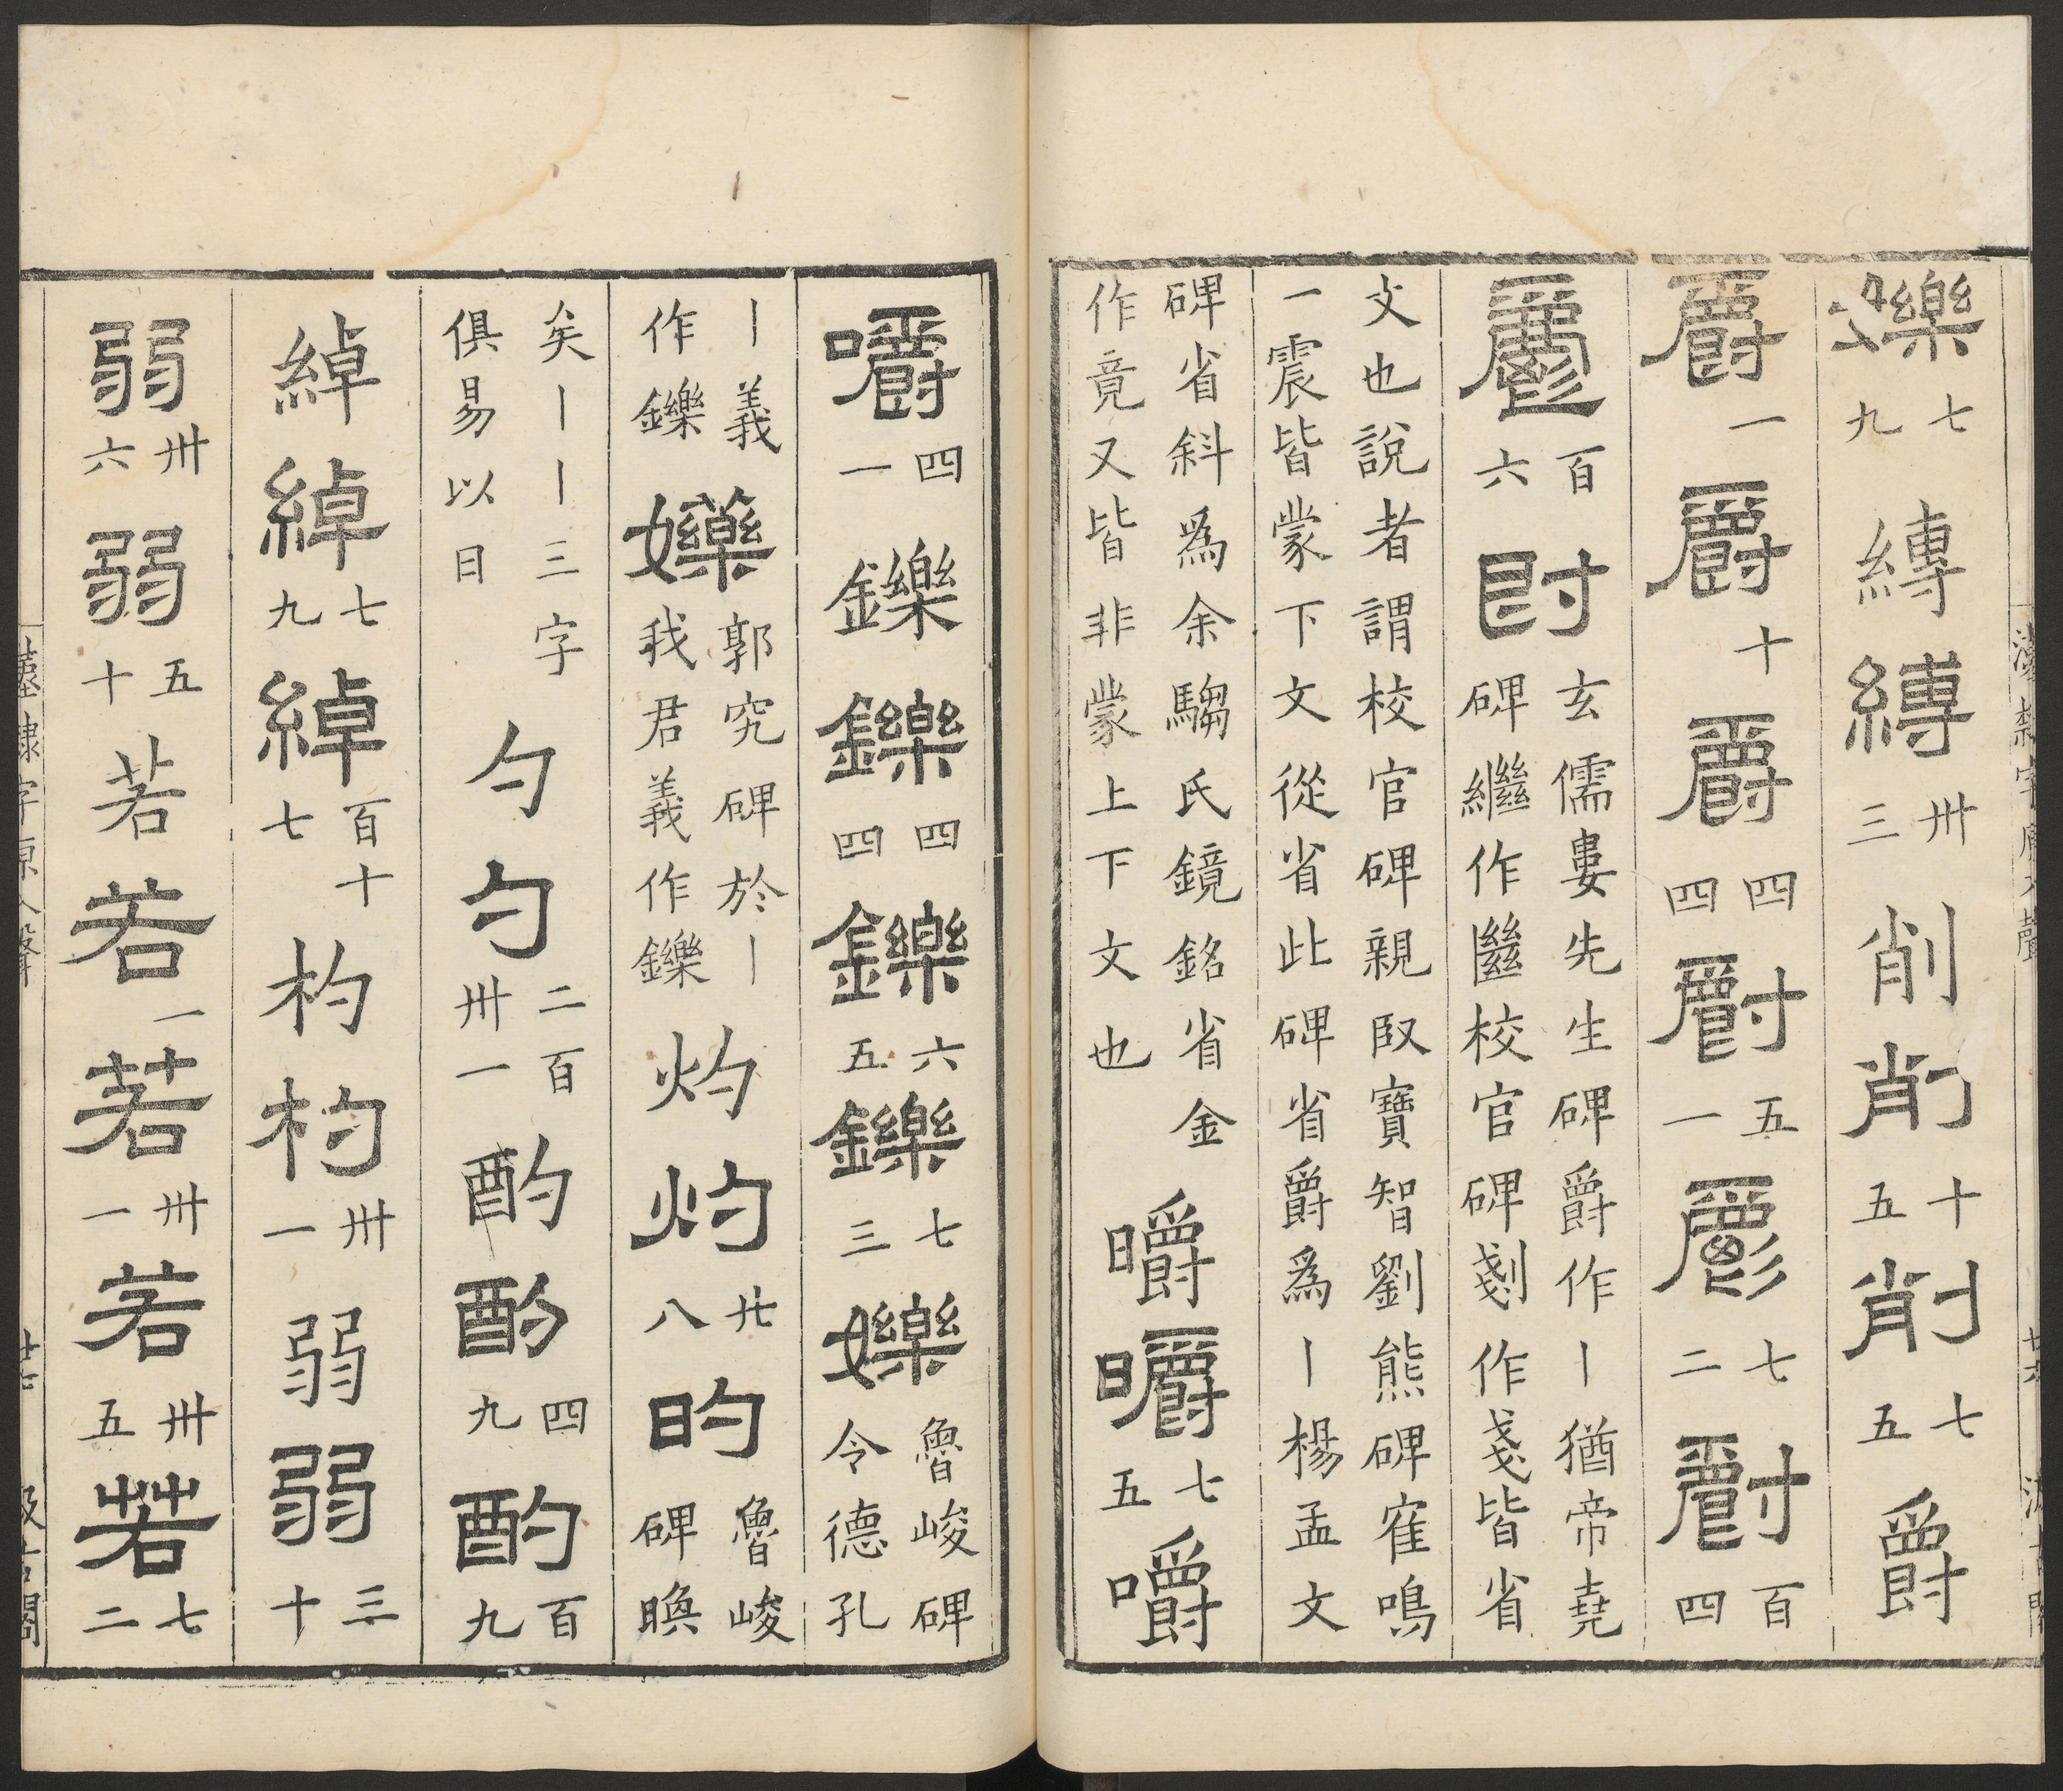 七九縛縛卅三削削十五削七五爵
爵一爵十爵四四爵五一爵七二爵百四
爵百六玄儒婁先生碑爵作丨猶帝堯
碑繼作㡭校官碑剗作戔皆省
文也說者謂校官碑親臤寶智劉熊碑寉鳴
一震皆蒙下文從省此碑省爵爲丨楊孟文
碑省斜爲余騶氏鏡銘省金
作竟又皆非蒙上下文也
㬭㬭七五嚼
嚼四一鑠鑠四四鑠六五鑠七三㜰魯峻碑
令德孔
丨義
作鑠
郭究碑於丨
我君義作鑠
灼灼廿八昀魯峻
碑㬇
矣丨丨三字
俱易以日
勺勺二百卅一酌酌四九酌百九
綽綽七九綽百十七杓杓卅一弱弱三十
弱卅六弱五十若若一若卅一若卅五若七二
漢隸字原入聲 廿七 汲古閣